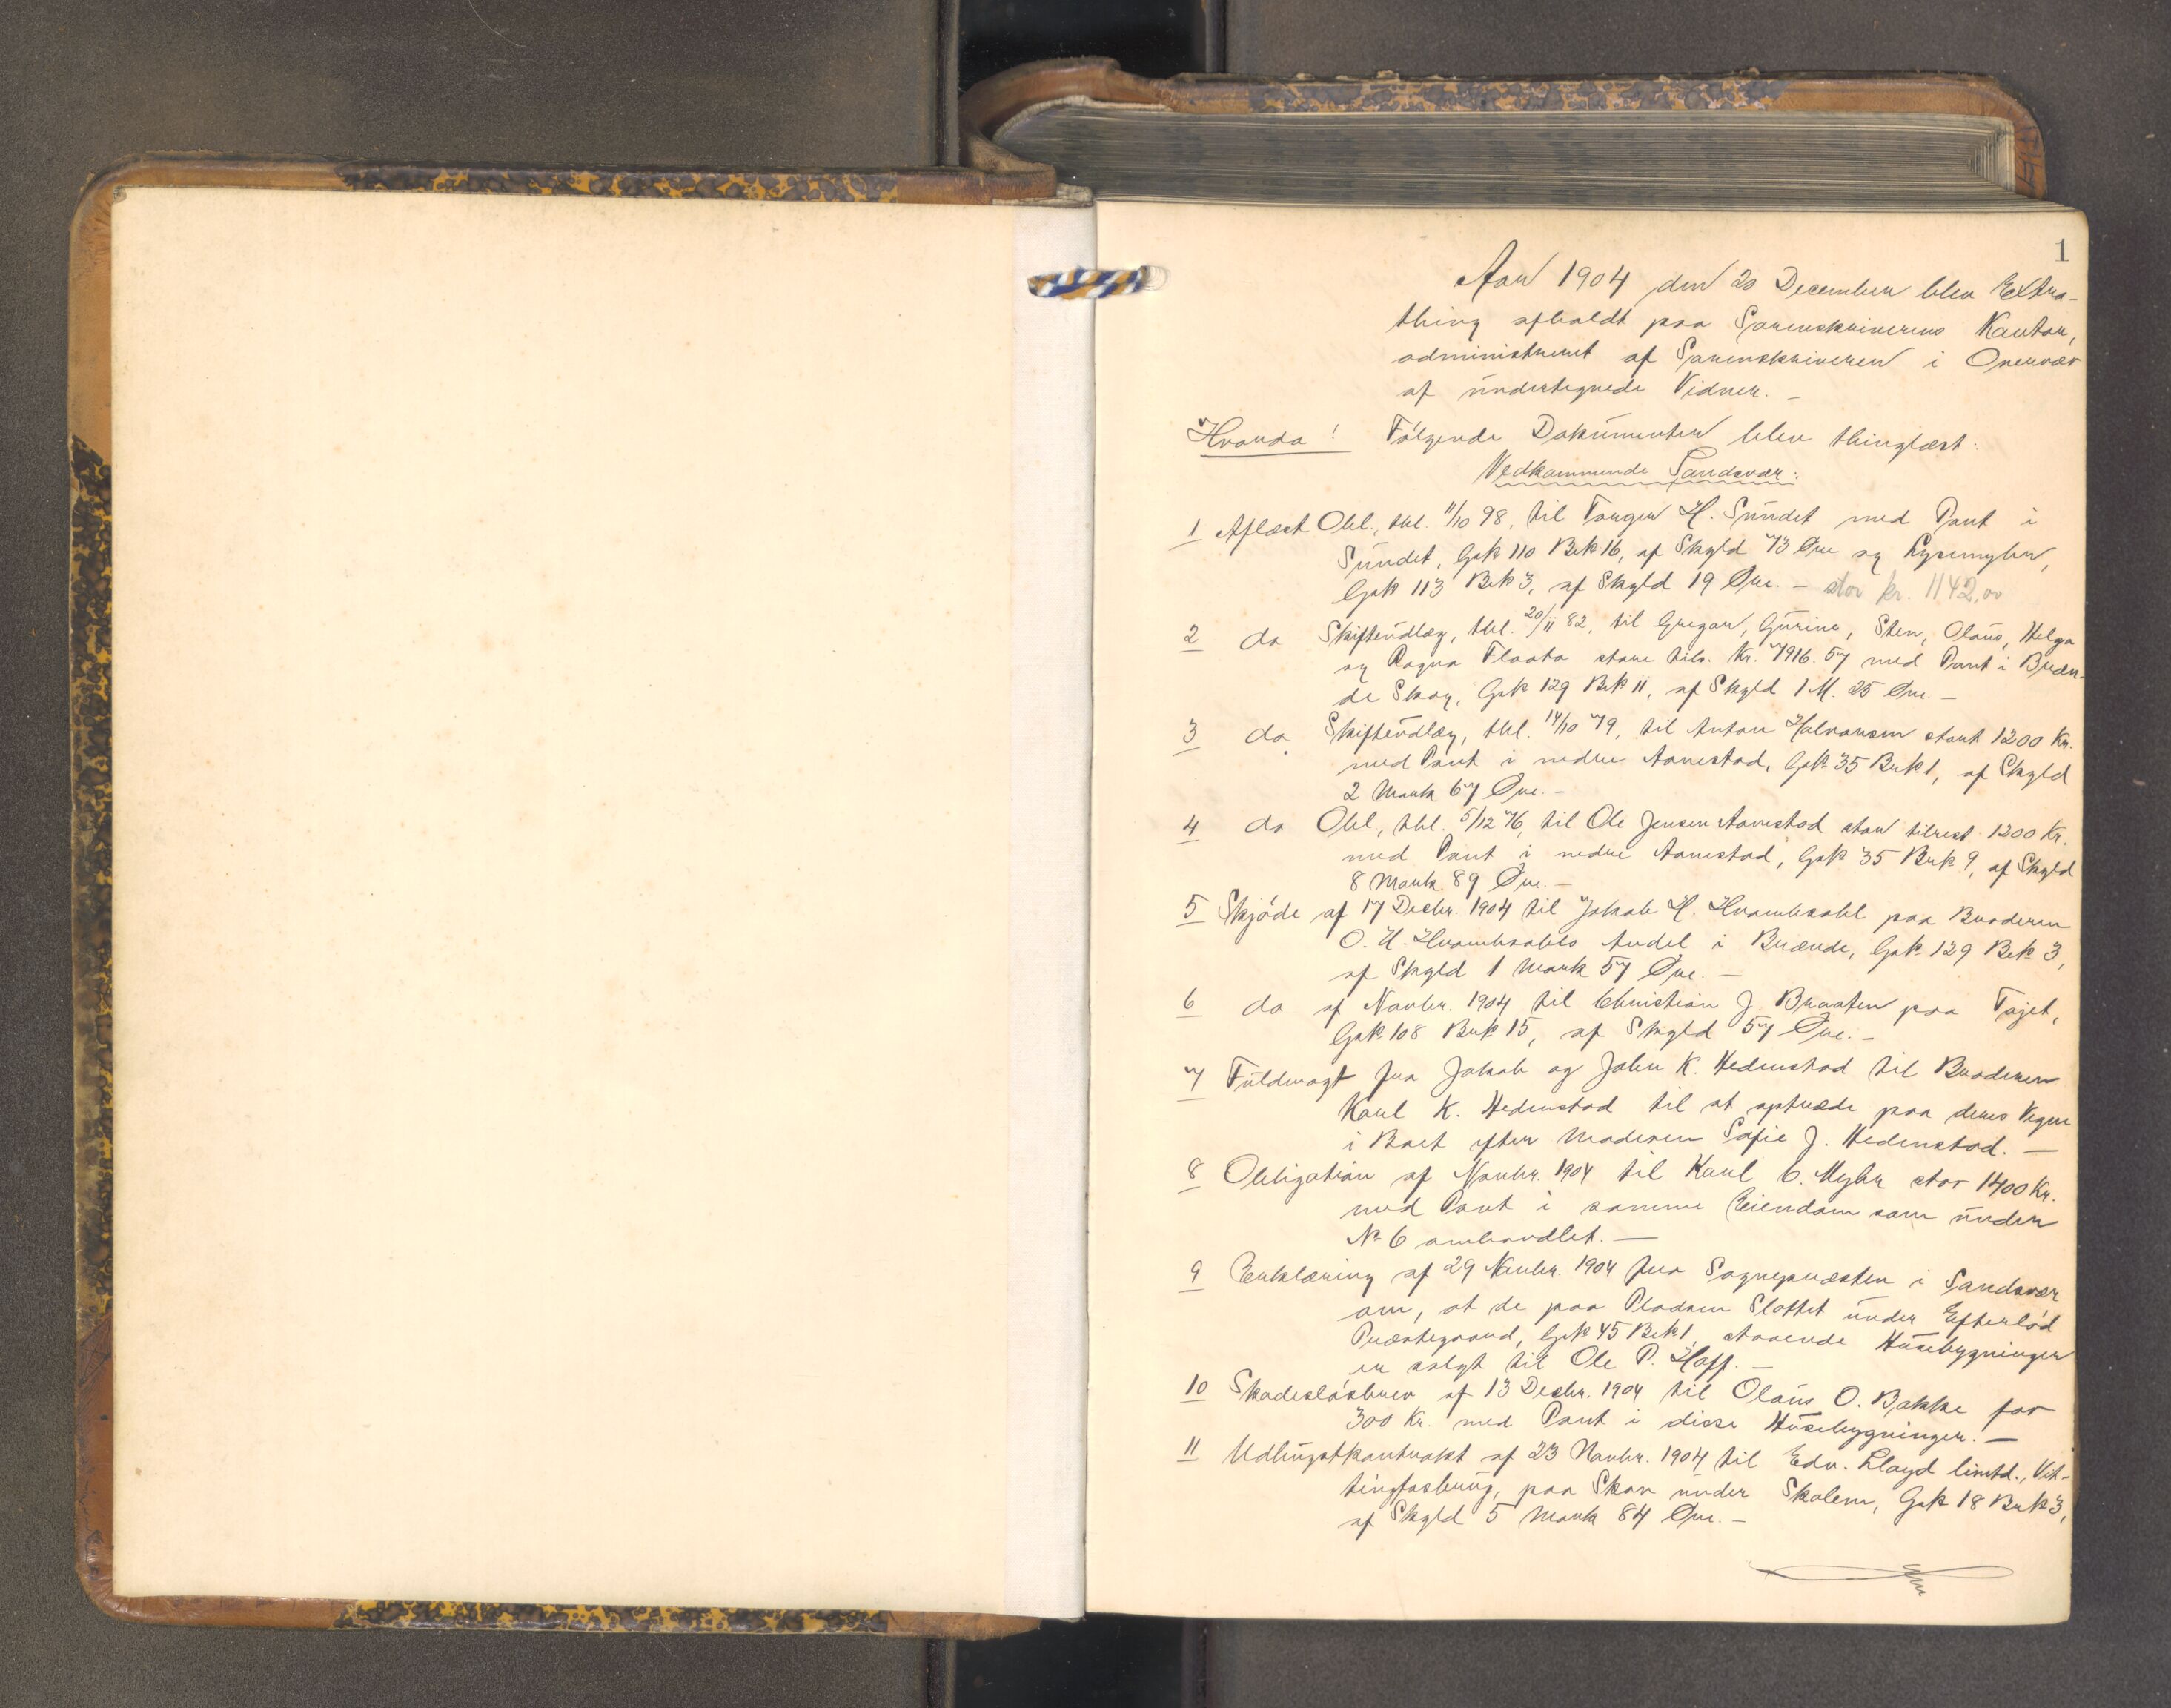 1
Aar 1904 den 20 December blev Extra-
thing afholdt paa Sorenskriverens Kontor,
administreret af Sorenskriveren i Overvær
af undertegnede Vidner. -
Hvorda! Følgende Dokumenter blev thinglæst:
Vedkommende Sandsvær:
1 Aflæst Obl., thl. 11/10 98, til Torger H. Sundet med Pant i
Sundet, Gnk 110 Brk 16, af Skyld 73 Øre og Lysemyhr,
Gnk 113 Brk 3, af Skyld 19 Øre. - stor kr. 1142,00
2 do Skifteudlæg, thl. 20/11 82, til Gregar, Gurine, Sten, Olaus, Helga
og Ragna Flaata store tils. Kr. 7916.57 med Pant i Bræn-
de Skog, Gnk 129 Brk 11, af Skyld 1 M. 25 Øre. -
3 do Skifteudlæg, thl. 14/10 79, til Anton Halvorsen stort 1200 Kr.
med Pant i nedre Aanestad, Gnk 35 Brk 1, af Skyld
2 Mark 67 Øre. -
4 do Obl., thl. 5/12 76, til Ole Jensen Aanestad stor tilrest 1200 Kr.
med Pant i nedre Aanestad, Gnk 35 Brk 9, af Skyld
8 Mark 89 Øre. -
5 Skjøde af 17 Decbr. 1904 til Jakob H. Hvambsahl paa Broderen
O. H. Hvambsahls Andel i Brænde, Gnk 129 Brk 3,
af Skyld 1 Mark 57 Øre. -
6 do af Novbr. 1904 til Christian J. Braaten paa Tajet,
Gnk 108 Brk 15, af Skyld 57 Øre. -
7 Fuldmagt fra Jakob og John K. Hedenstad til Broderen
Karl K. Hedenstad til at optræde paa deres Vegne
i Boet efter Moderen Sofie J. Hedenstad. -
8 Obligation af Novbr. 1904 til Karl C. Myhr stor 1400 Kr.
med Pant i samme Eiendom som under
No 6 omhandlet. -
9 Erklæring af 29 Novbr. 1904 fra Sognepræsten i Sandsvær
om, at de paa Pladsen Slottet under Efteløt
Præstegaard, Gnk 45 Brk 1, staaende Husebygninger
er solgt til Ole P. Hoff. -
10 Skadesløsbrev af 13 Decbr. 1904 til Olaus O. Bakke for
300 Kr. med Pant i disse Husebygninger. -
11 Udhugstkontrakt af 23 Novbr. 1904 til Edv. Lloyd limtd., Vit-
tingfosbrug, paa Skov under Skolem, Gnk 18 Brk 3,
af Skyld 5 Mark 84 Øre. -